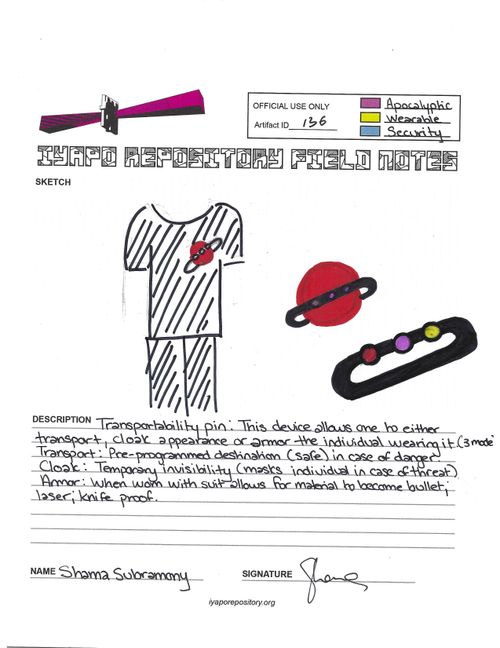 OFFICIAL USE ONLY
Artifact ID 136
Apocalyptic
Wearable
Security
IYAPO REPOSITORY FIELD NOTES
SKETCH
DESCRIPTION Transportability pin: This device allows one to either
transport, cloak appearance or armor the individual wearing it. (3 mode
Transport: Pre-programmed destination (safe) in case of danger.
Cloak: Temporary invisibility (masks individual in case of threat)
Armor: When worn with suit allows for material to become bullet;
laser; knife proof.
NAME Shama Subramony SIGNATURE Shama
iyaporepository.org